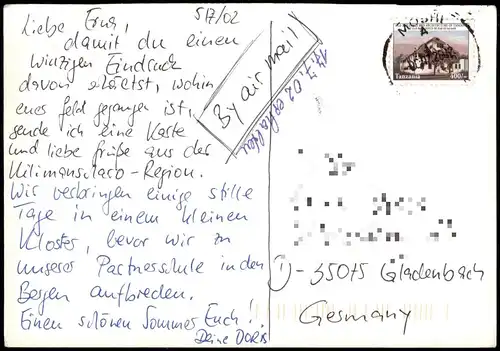 5/7/02
Liebe Erna,
damit du einen
winzigen Eindruck
davon erhältst, wohin
euer Geld gegangen ist,
sende ich eine Karte
und liebe Grüße aus der
Kilimanjaro-Region.
Wir verbringen einige stille
Tage in einem kleinen
Kloster, bevor wir zu
unserer Partnerschule in den
Bergen aufbrechen.
Einen schönen Sommer Euch!
Deine DORIS
By air mail
17.7.02 erhalten
MOSHI
Tanzania
400/-
D-35075 Gladenbach
Germany